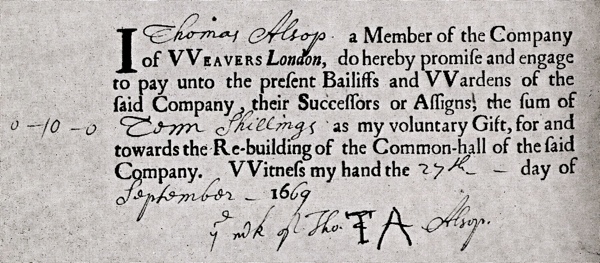 I Thomas Alsop a Member of the Company
of VVEAVERS London, do hereby promiſe and engage
to pay unto the preſent Bailiffs and VVardens of the
ſaid Company, their Succeſſors or Aſſigns, the ſum of
0-10-0 Tenn Shillings as my voluntary Gift, for and
towards the Re-building of the Common-hall of the ſaid
Company. VVitneſs my hand the 27th day of
September 1669
yᵉ mk of Tho. TA Alsop.